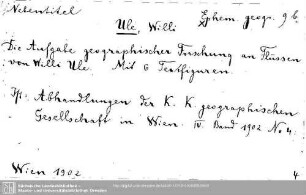 Nebentitel
Ephem. geogr. 9 b.
Ule, Willi
Die Aufgabe geographischer Forschung an Flüssen
von Willi Ule. Mit 6 Textfiguren.
Abhandlungen der K. K. geographischen
Gesellschaft in Wien. IV. Band 1902 No 4.
Wien 1902
4